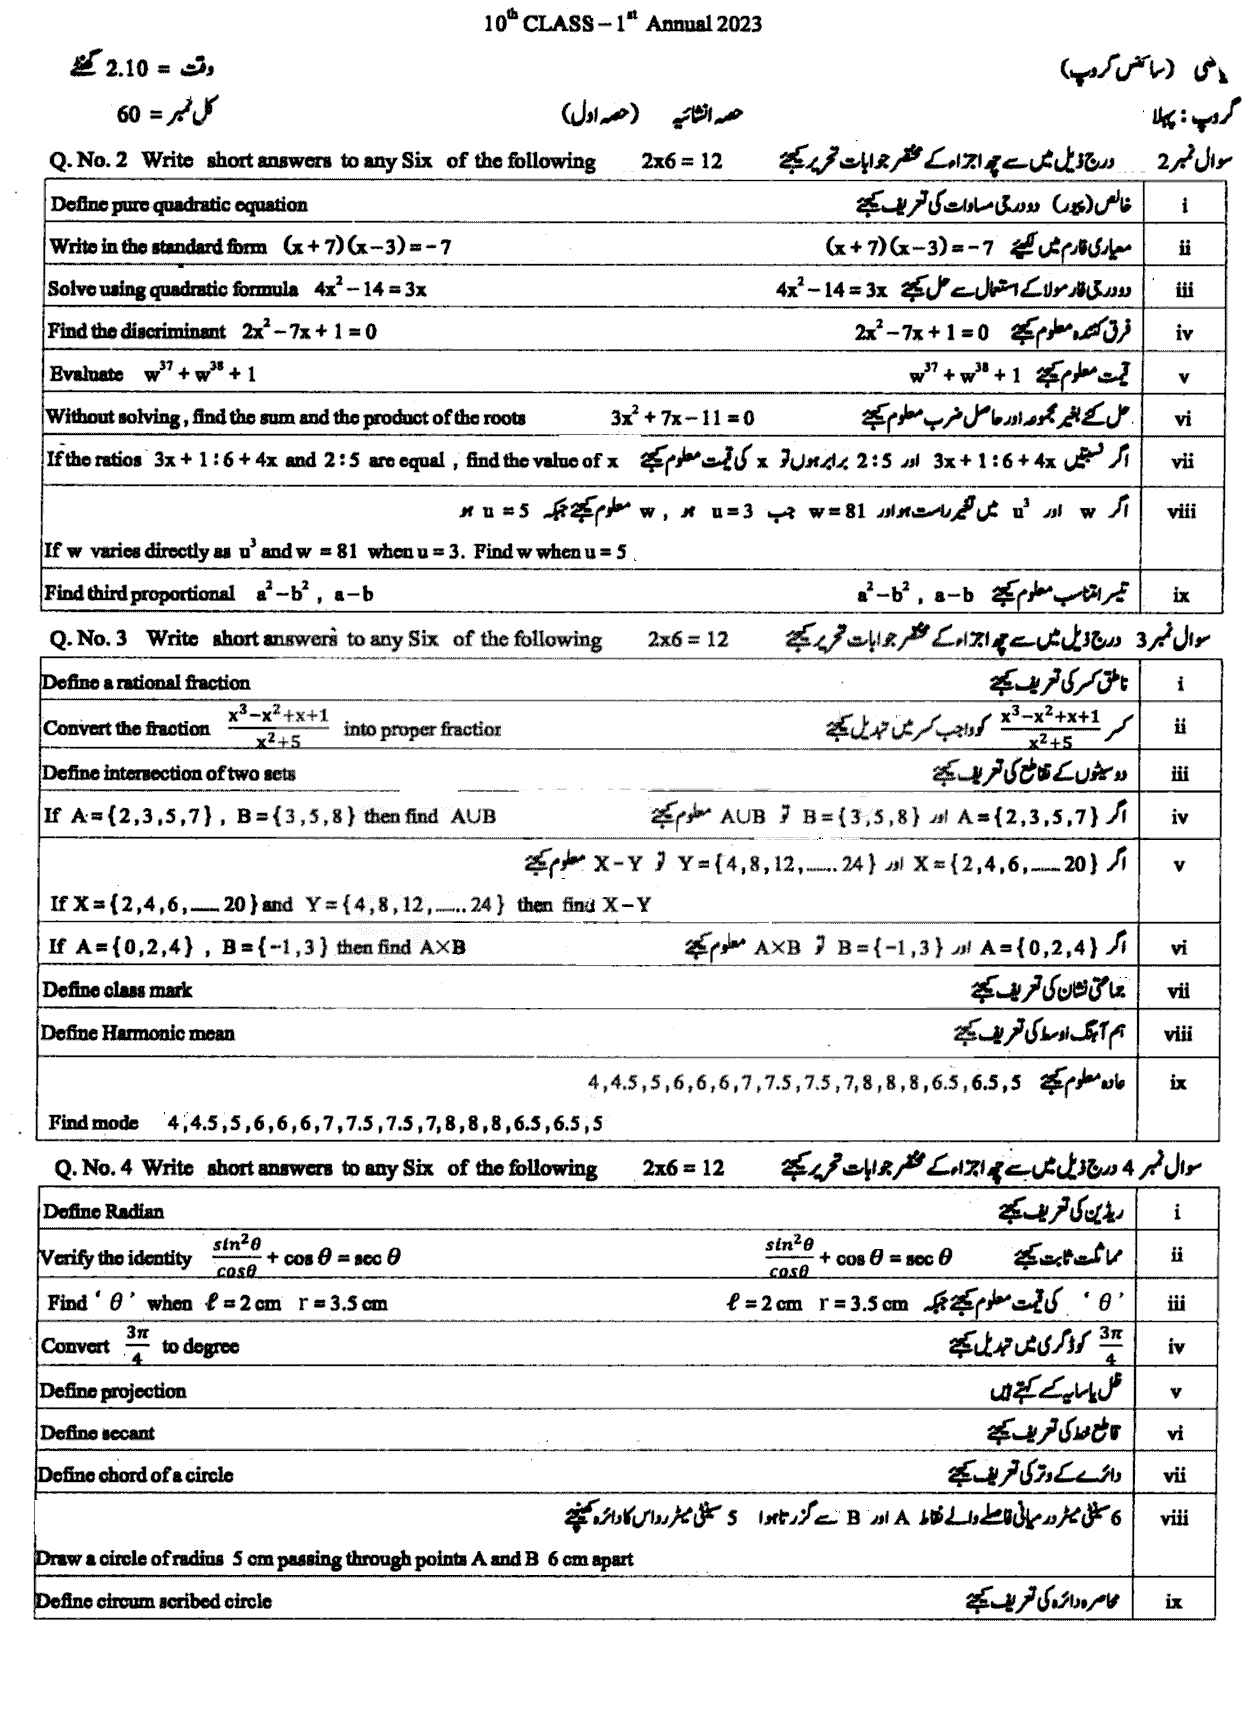 10th CLASS – 1st Annual 2023
ریاضی (سائنس گروپ) وقت = 2.10 گھنٹے
گروپ : پہلا حصہ انشائیہ (حصہ اول) کل نمبر = 60
Q. No. 2 Write short answers to any Six of the following 2x6 = 12 سوال نمبر 2 درج ذیل میں سے چھ اجزاء کے مختصر جوابات تحریر کیجئے
Define pure quadratic equation خالص (پیور) دو درجی مساوات کی تعریف کیجئے i
Write in the standard form (x + 7)(x – 3) = – 7 معیاری فارم میں لکھئے (x + 7)(x – 3) = – 7 ii
Solve using quadratic formula 4x² – 14 = 3x دو درجی فارمولا کے استعمال سے حل کیجئے 4x² – 14 = 3x iii
Find the discriminant 2x² – 7x + 1 = 0 فرق کنندہ معلوم کیجئے 2x² – 7x + 1 = 0 iv
Evaluate w³⁷ + w³⁸ + 1 قیمت معلوم کیجئے w³⁷ + w³⁸ + 1 v
Without solving , find the sum and the product of the roots 3x² + 7x – 11 = 0 حل کئے بغیر مجموعہ اور حاصل ضرب معلوم کیجئے vi
If the ratios 3x + 1 : 6 + 4x and 2 : 5 are equal , find the value of x اگر نسبتیں 3x + 1 : 6 + 4x اور 2 : 5 برابر ہوں تو x کی قیمت معلوم کیجئے vii
اگر w اور u³ میں تغیر راست ہو اور w = 81 جب u = 3 ہو , w معلوم کیجئے جبکہ u = 5 ہو viii
If w varies directly as u³ and w = 81 when u = 3. Find w when u = 5
Find third proportional a² – b² , a – b تیسرا تناسب معلوم کیجئے a² – b² , a – b ix
Q. No. 3 Write short answers to any Six of the following 2x6 = 12 سوال نمبر 3 درج ذیل میں سے چھ اجزاء کے مختصر جوابات تحریر کیجئے
Define a rational fraction ناطق کسر کی تعریف کیجئے i
Convert the fraction (x³–x²+x+1)/(x²+5) into proper fractior کسر (x³–x²+x+1)/(x²+5) کو واجب کسر میں تبدیل کیجئے ii
Define intersection of two sets دو سیٹوں کے تقاطع کی تعریف کیجئے iii
If A = {2,3,5,7} , B = {3,5,8} then find A∪B اگر A = {2,3,5,7} اور B = {3,5,8} تو A∪B معلوم کیجئے iv
اگر X = {2,4,6,......20} اور Y = {4,8,12,......24} تو X – Y معلوم کیجئے v
If X = {2,4,6,......20} and Y = {4,8,12,......24} then find X – Y
If A = {0,2,4} , B = {–1,3} then find A×B اگر A = {0,2,4} اور B = {–1,3} تو A×B معلوم کیجئے vi
Define class mark جماعتی نشان کی تعریف کیجئے vii
Define Harmonic mean ہم آہنگ اوسط کی تعریف کیجئے viii
عادہ معلوم کیجئے 4,4.5,5,6,6,6,7,7.5,7.5,7,8,8,8,6.5,6.5,5 ix
Find mode 4,4.5,5,6,6,6,7,7.5,7.5,7,8,8,8,6.5,6.5,5
Q. No. 4 Write short answers to any Six of the following 2x6 = 12 سوال نمبر 4 درج ذیل میں سے چھ اجزاء کے مختصر جوابات تحریر کیجئے
Define Radian ریڈین کی تعریف کیجئے i
Verify the identity sin²θ/cosθ + cos θ = sec θ مماثلت ثابت کیجئے sin²θ/cosθ + cos θ = sec θ ii
Find ‘ θ ’ when ℓ = 2 cm r = 3.5 cm ‘ θ ’ کی قیمت معلوم کیجئے جبکہ ℓ = 2 cm r = 3.5 cm iii
Convert 3π/4 to degree 3π/4 کو ڈگری میں تبدیل کیجئے iv
Define projection ظل یا سایہ کسے کہتے ہیں v
Define secant قاطع خط کی تعریف کیجئے vi
Define chord of a circle دائرے کے وتر کی تعریف کیجئے vii
6 سینٹی میٹر درمیانی فاصلے والے نقاط A اور B سے گزرتا ہوا 5 سینٹی میٹر رداس کا دائرہ کھینچئے viii
Draw a circle of radius 5 cm passing through points A and B 6 cm apart
Define circum scribed circle محاصرہ دائرہ کی تعریف کیجئے ix